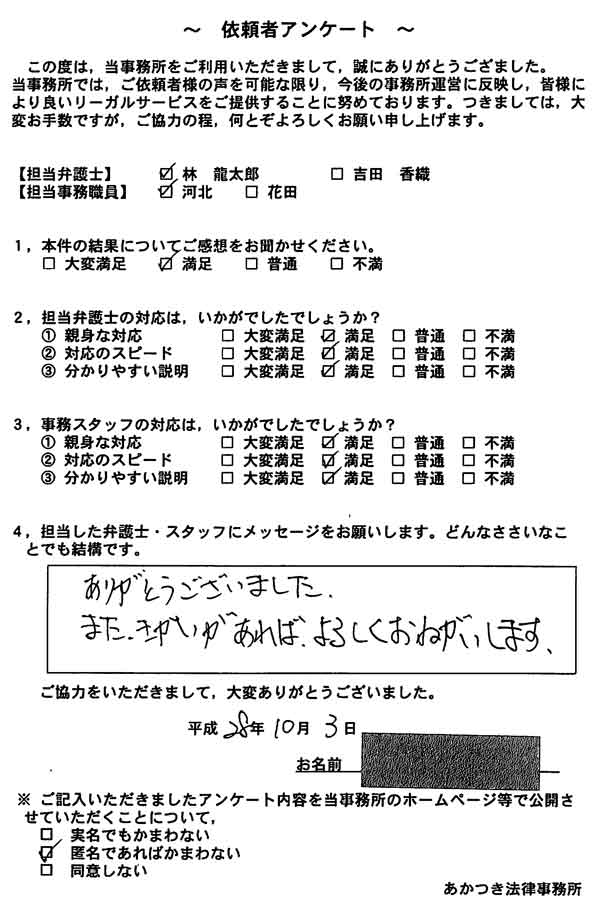 ～ 依頼者アンケート ～
この度は，当事務所をご利用いただきまして，誠にありがとうございました。
当事務所では，ご依頼者様の声を可能な限り，今後の事務所運営に反映し，皆様に
より良いリーガルサービスをご提供することに努めております。つきましては，大
変お手数ですが，ご協力の程，何とぞよろしくお願い申し上げます。
【担当弁護士】 ☑ 林 龍太郎 □ 吉田 香織
【担当事務職員】 ☑ 河北 □ 花田
1，本件の結果についてご感想をお聞かせください。
□ 大変満足 ☑ 満足 □ 普通 □ 不満
2，担当弁護士の対応は，いかがでしたでしょうか？
① 親身な対応 □ 大変満足 ☑ 満足 □ 普通 □ 不満
② 対応のスピード □ 大変満足 ☑ 満足 □ 普通 □ 不満
③ 分かりやすい説明 □ 大変満足 ☑ 満足 □ 普通 □ 不満
3，事務スタッフの対応は，いかがでしたでしょうか？
① 親身な対応 □ 大変満足 ☑ 満足 □ 普通 □ 不満
② 対応のスピード □ 大変満足 ☑ 満足 □ 普通 □ 不満
③ 分かりやすい説明 □ 大変満足 ☑ 満足 □ 普通 □ 不満
4，担当した弁護士・スタッフにメッセージをお願いします。どんなささいなこ
とでも結構です。
ありがとうございました.
また、きかいがあれば、よろしくおねがいします、
ご協力をいただきまして，大変ありがとうございました。
平成 28年 10月 3日
お名前
※ ご記入いただきましたアンケート内容を当事務所のホームページ等で公開さ
せていただくことについて，
□ 実名でもかまわない
☑ 匿名であればかまわない
□ 同意しない
あかつき法律事務所